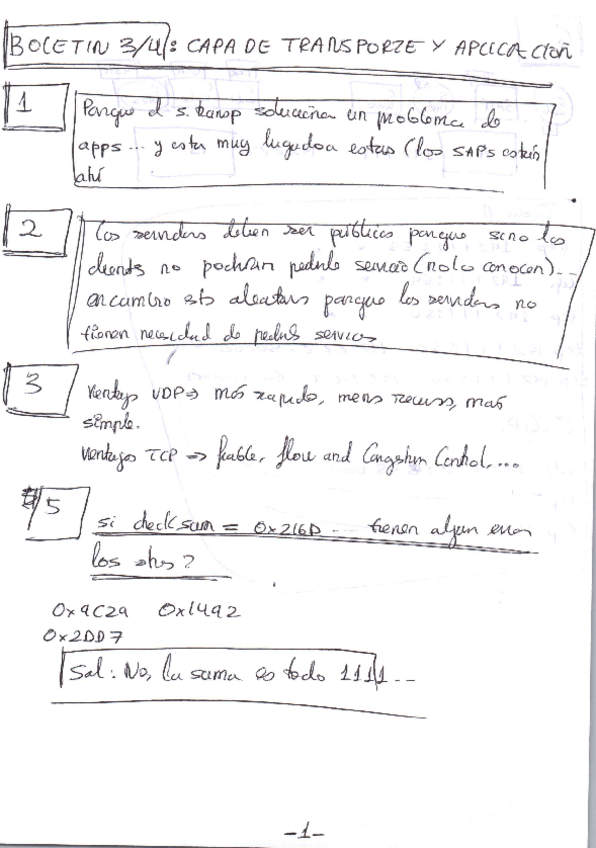 BOLETIN 3/4: CAPA DE TRANSPORTE Y APLICACION
1
Porque el s. transp soluciona un problema de
apps... y esta muy lugadoa estas (los SAPs están
ahí
2
Los servidors deben ser públicos porque sino los
clients no podrían pedirle servicio (no lo conocen)...
en cambio ests aleatars porque los servidors no
tienen necesidad de pedirls servicios
3
Ventajs UDP => más rapido, mens recurss, mas
simple.
Ventajas TCP => fiable, flow and Congstion Control, ...
5
si checksum = 0x216D ... tienen algun error
los dts?
0x9C29 0x1492
0x2DD7
Sol: No, la suma es todo 1111...
-1-